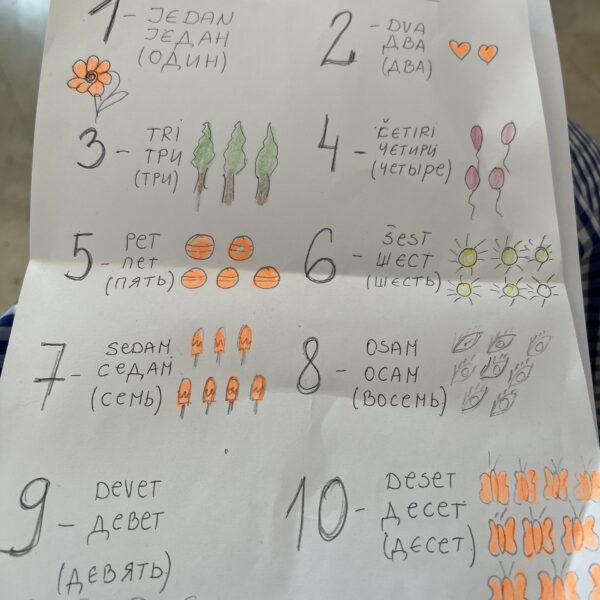 1 - JEDAN
ЈЕДАН
(ОДИН)
2 - DVA
ДВА
(ДВА)
3 - TRI
ТРИ
(ТРИ)
4 - ČETIRI
ЧЕТИРИ
(ЧЕТЫРЕ)
5 - PET
ПЕТ
(ПЯТЬ)
6 - ŠEST
ШЕСТ
(ШЕСТЬ)
7 - SEDAM
СЕДАМ
(СЕМЬ)
8 - OSAM
ОСАМ
(ВОСЕМЬ)
9 - DEVET
ДЕВЕТ
(ДЕВЯТЬ)
10 - DESET
ДЕСЕТ
(ДЕСЕТ)